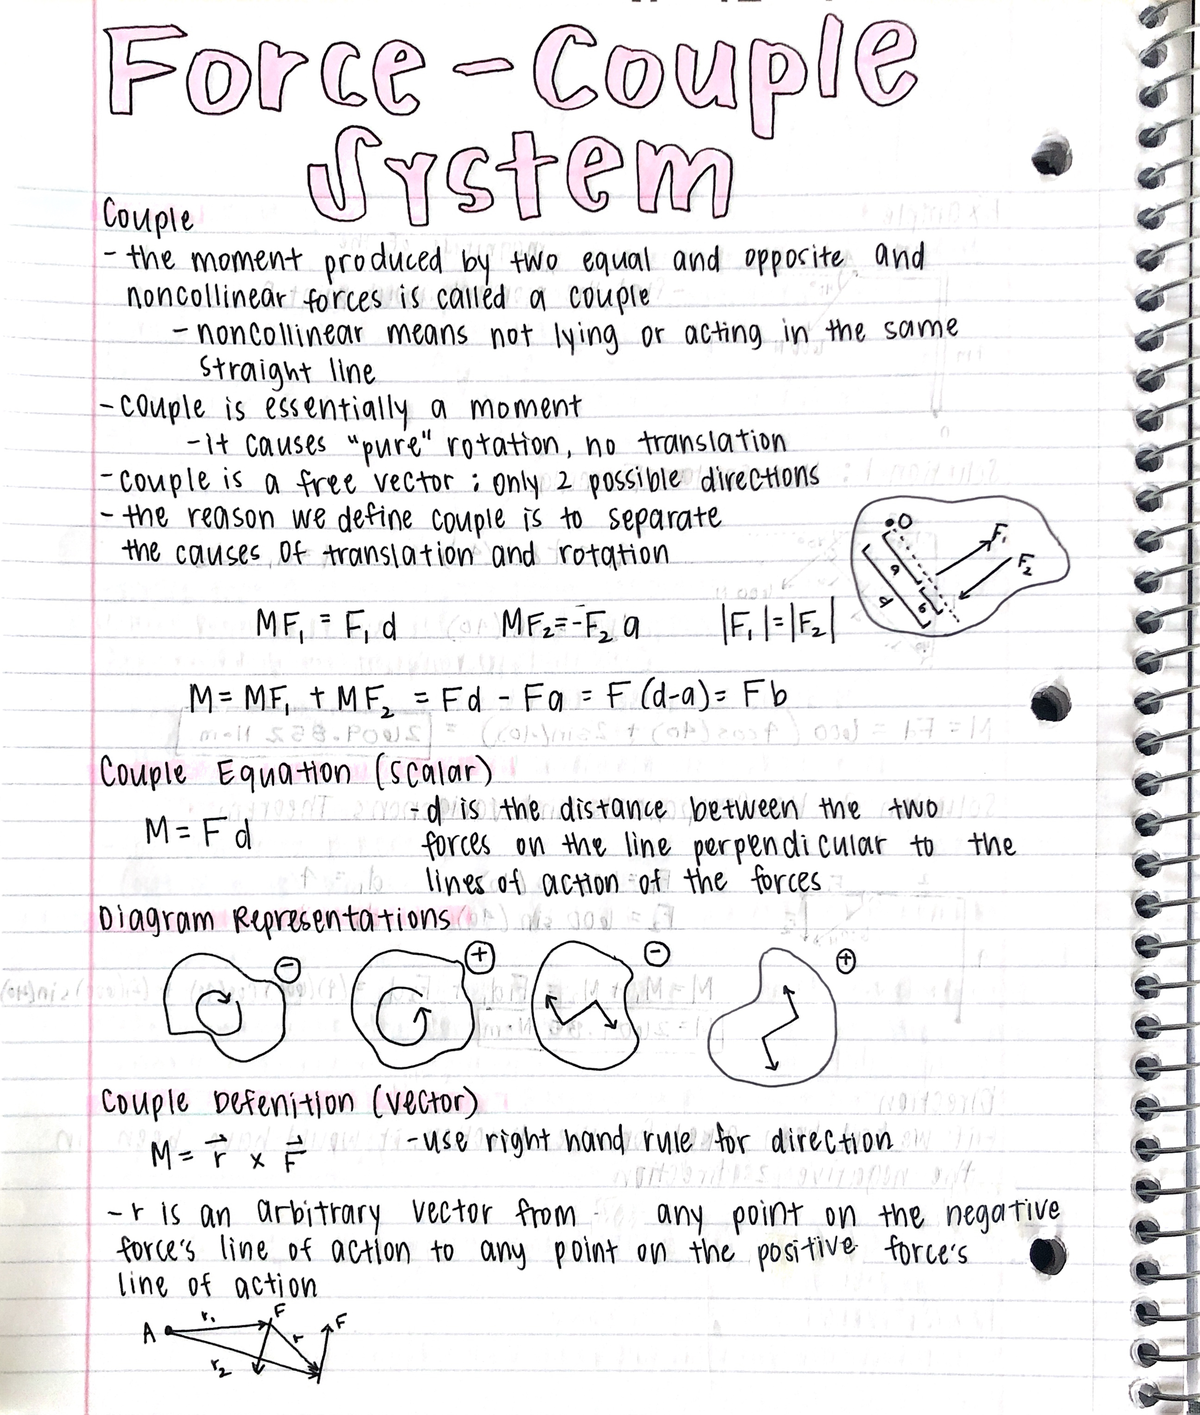 Force-Couple
System
Couple
- the moment produced by two equal and opposite and
noncollinear forces is called a couple
- noncollinear means not lying or acting in the same
straight line
- couple is essentially a moment
- it causes "pure" rotation, no translation
- couple is a free vector ; only 2 possible directions
- the reason we define couple is to separate
the causes of translation and rotation
O
F₁
F₂
a
d
b
MF₁ = F₁ d MF₂=-F₂ a |F₁|=|F₂|
M= MF₁ + MF₂ = Fd - Fa = F (d-a)= Fb
Couple Equation (scalar)
M= Fd
- d is the distance between the two
forces on the line perpendicular to the
lines of action of the forces
Diagram Representations
- + - +
Couple Defenition (vector)
M= r⃗ x F⃗ -use right hand rule for direction
- r is an arbitrary vector from any point on the negative
force's line of action to any point on the positive force's
line of action
A r₁ F r F
r₂